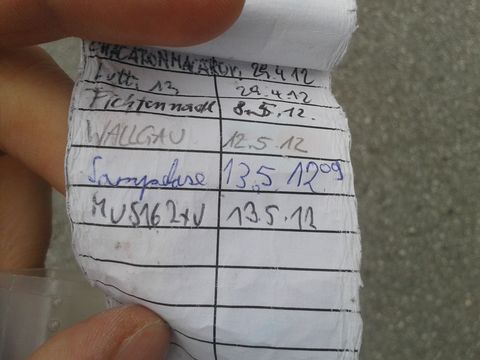 CHACARONMACARON, 29.4.12
Lutti 13 29.4.12
Fichtennadl 8.5.12.
WALLGAU 12.5.12
13.5.12 09
13.5.12